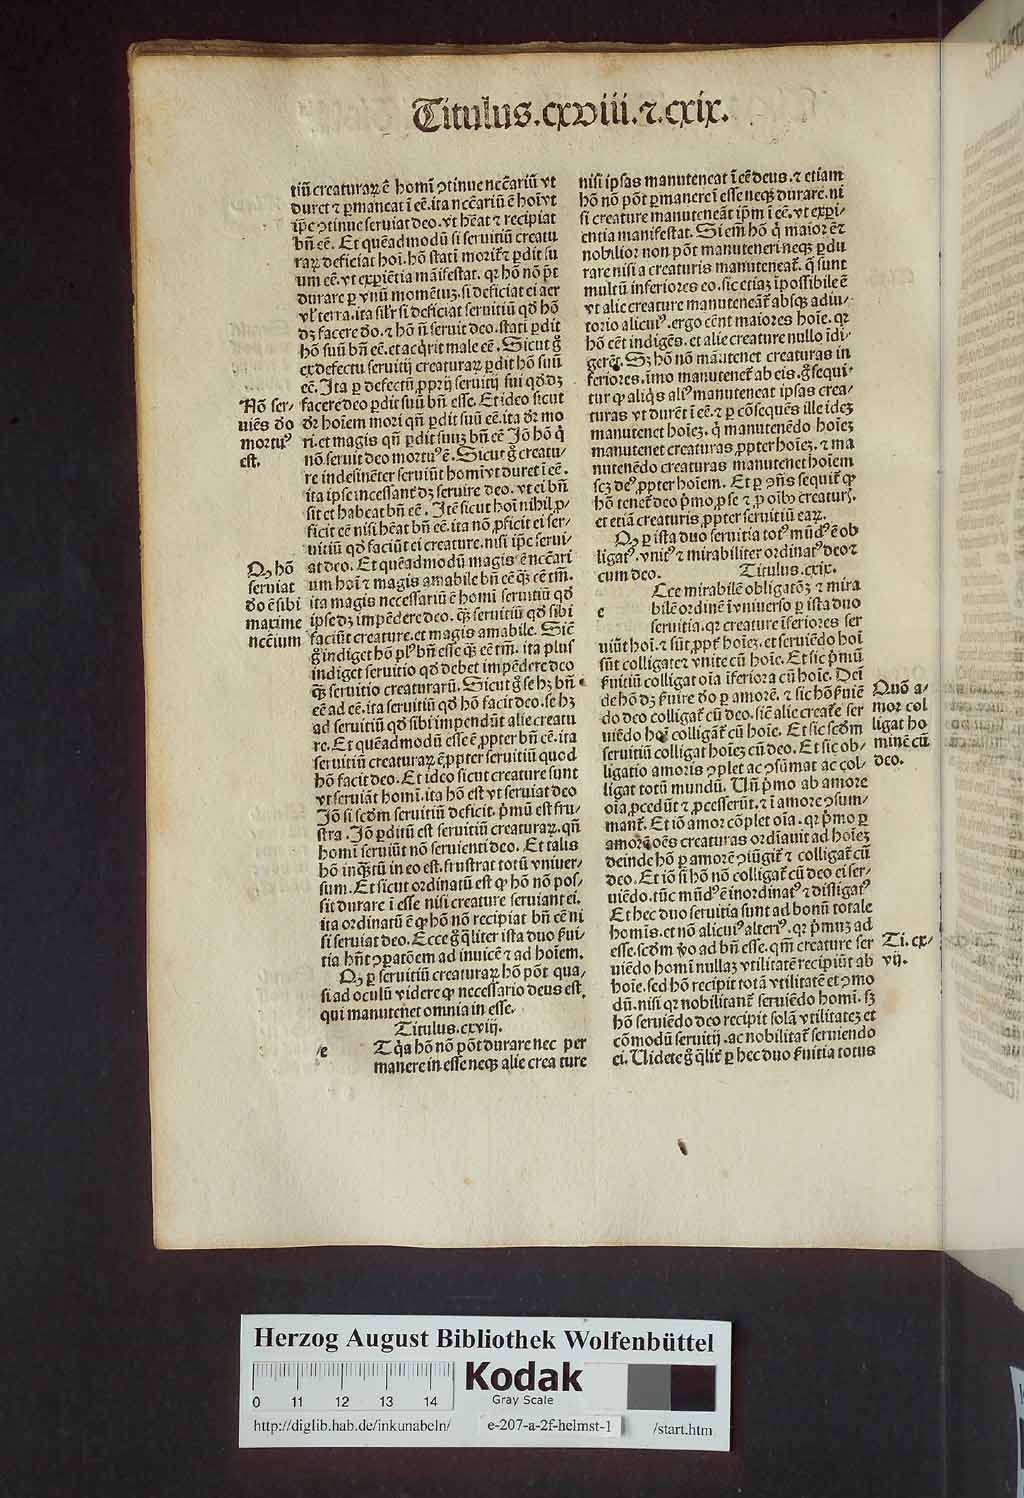 Titulus.cxviii.⁊.cxix.
tiū creaturaꝝ ē homī ꝯtinue necc̄ariū vt
duret ⁊ ꝑmaneat ī eē.ita necc̄ariū ē hoī vt
ip̄e ꝯtinue seruiat deo.vt hēat ⁊ recipiat
bn̄ eē. Et quēadmodū si seruitiū creatu
raꝝ deficiat hoī.hō stati morit᷑ ⁊ ꝑdit su
um eē.vt exꝑiētia māifestat.qꝛ hō nō pōt
durare ꝑ vnū momētuꝫ.si deficiat ei aer
vl̓ terra.ita sil̓r si deficiat seruitiū qd̓ hō
dꝫ facere do.⁊ hō n̄ seruit deo.stati ꝑdit
hō suū bn̄ eē.et acq̇rit male eē. Sicut g̊
ex defectu seruitij creaturaꝝ ꝑdit hō suū
eē. Ita ꝑ defectū ꝓprij seruitij sui qd̓ dꝫ
facere deo ꝑdit suū bn̄ esse. Et ideo sicut
dr̄ hoīem mori qn̄ ꝑdit suū eē.ita dr̄ mo
ri.et magis qn̄ ꝑdit suuꝫ bn̄ eē Iō hō q̇
nō seruit deo mortuꝰ ē. Sicut g̊ creatu-
re indesinēter seruiūt homī vt duret ī eē.
ita ipse incessant᷑ dꝫ seruire deo.vt ei bn̄
sit et habeat bn̄ eē. Itē sicut hoī nihil ꝓ-
ficit eē nisi hēat bn̄ eē.ita nō ꝓficit ei ser-
uitiū qd̓ faciūt ei creature.nisi ip̄e serui-
at deo. Et quēadmodū magis ē necc̄ari
um hoī ⁊ magis amabile bn̄ eē q̄ꝫ eē tm̄.
ita magis necessariū ē homī seruitiū qd̓
ipse dꝫ impēdere deo.q̄ꝫ seruitiū qd̓ sibi
faciūt creature.et magis amabile. Sic̄
g̊ indiget hō plꝰ bn̄ esse q̄ꝫ eē tm̄.ita plus
indiget seruitio qd̓ debet impēdere deo
q̄ꝫ seruitio creaturarū. Sicut g̊ se hꝫ bn̄
eē ad eē.ita seruitiū qd̓ hō facit deo.se hꝫ
ad seruitiū qd̓ sibi impendūt alie creatu
re. Et quēadmodū esse ē ꝓpter bn̄ eē.ita
seruitiū creaturaꝝ ē ꝓpter seruitiū quod
hō facit deo. Et ideo sicut creature sunt
vt seruiāt homī.ita hō est vt seruiat deo
Iō si scd̓m seruitiū deficit.p̄mū est fru-
stra. Iō ꝑditū est seruitiū creaturaꝝ.qn̄
homī seruiūt nō seruienti deo. Et talis
hō inq̄ꝫtū in eo est.frustrat totū vniuer-
sum. Et sicut ordinatū est ꝙ hō nō pos-
sit durare ī esse nisi creature seruiant ei.
ita ordinatū ē ꝙ hō nō recipiat bn̄ eē ni
si seruiat deo. Ecce g̊ q̄liter ista duo ẜui-
tia hn̄t ꝯꝑatōem ad inuicē ⁊ ad hoīem.
Qꝫ ꝑ seruitiū creaturaꝝ hō pōt qua-
si ad oculū videre ꝙ necessario deus est
qui manutenet omnia in esse.
Titulus.cxviij.
/e Tq̇a hō nō pōt durare nec per
manere in esse neqꝫ alie crea ture
Nō ser-
uiēs do
mortuꝰ
est.
Qꝫ hō
seruiat
do ē sibi
maxime
nec̄ium
nisi ipsas manuteneat ī eē deus.⁊ etiam
hō nō pōt ꝑmanere ī esse neqꝫ durare.ni
si creature manuteneāt ip̄m ī eē.vt exꝑi-
entia manifestat. Si em̄ hō q̇ maior ē ⁊
nobilior non pōt manuteneri neqꝫ ꝑdu
rare nisi a creaturis manuteneat᷑.q̄ sunt
multū inferiores eo.sic etiaꝫ īpossibile ē
vt alie creature manuteneāt᷑ absqꝫ adiu-
torio alicuiꝰ.ergo eēnt maiores hoīe.qꝛ
hō eēt indigēs.et alie creature nullo īdi-
gerēt. Sꝫ hō nō manutenet creaturas in
feriores.īmo manutenet᷑ ab eis.g̊ sequi-
tur ꝙ aliq̇s aliꝰ manuteneat ipsas crea-
turas vt durēt ī eē.⁊ ꝑ cōsequēs ille ideꝫ
manutenet hoīeꝫ.q̇ manutenēdo hoīeꝫ
manutenet creaturas ꝓpter hoīeꝫ.⁊ ma
nutenēdo creaturas manutenet hoīem
scꝫ deꝰ ꝓpter hoīem. Et ꝑ ꝯn̄s sequit᷑ ꝙ
hō tenet᷑ deo p̄mo ꝓ se ⁊ ꝓ oībꝰ creatur̄.
et etiā creaturis ꝓpter seruitiū eaꝝ.
Qꝫ ꝑ ista duo seruitia totꝰ mūdꝰ ē ob
ligatꝰ.vnitꝰ ⁊ mirabiliter ordinatꝰ deo ⁊
cum deo. Titulus.cxix.
e Cce mirabilē obligatōeꝫ ⁊ mira
bilē ordinē ī vniuerso ꝑ ista duo
seruitia.qꝛ creature īferiores ser
uiūt hoī.⁊ sūt ꝓpt̓ hoīeꝫ.et seruiēdo hoī
sūt colligate ⁊ vnite cū hoīe. Et sic p̄mū
ẜuitiū colligat oīa īferiora cū hoīe. Deī
de hō dꝫ ẜuire do ꝑ amorē.⁊ sic hō ẜuiē
do deo colligat᷑ cū deo.sic̄ alie creat̓e ser
uiēdo hoī colligāt᷑ cū hoīe. Et sic scd̓m
seruitiū colligat hoīeꝫ cū deo. Et sic ob-
ligatio amoris ꝯplet ac ꝯsūmat ac col-
ligat totū mundū. Vn̄ p̄mo ab amore
oīa ꝓcedūt ⁊ ꝓcesserūt.⁊ ī amore ꝯsum-
mant᷑. Et iō amor cōplet oīa.qꝛ p̄mo ꝑ
amorē oēs creaturas ordīauit ad hoīeꝫ
deinde hō ꝑ amorē ꝯiūgit᷑ ⁊ colligat᷑ cū
deo. Et iō si hō nō colligat᷑ cū deo ei ser-
uiēdo.tūc mūdꝰ ē inordinatꝰ ⁊ dissigatꝰ
Et hec duo seruitia sunt ad bonū totale
homis.et nō alicuiꝰ alteriꝰ.qꝛ p̄muꝫ ad
esse.scd̓m v̊o ad bn̄ esse.qm̄ creature ser
uiēdo homī nullaꝫ vtilitatē recipiūt ab
hoīe.sed hō recipit totā vtilitatē et ꝯmo
dū.nisi qꝛ nobilitant᷑ seruiēdo homī.sꝫ
hō seruiēdo deo recipit solā vtilitateꝫ et
cōmodū seruitij.ac nobilitat᷑ seruiendo
ei. Uidete g̊ q̄lit᷑ ꝑ hec duo ẜuitia totus
Quō a-
mor col
ligat ho
minē cū
deo.
Ti.cx-
vij.
Herzog August Bibliothek Wolfenbüttel
0 11 12 13 14
Kodak
Gray Scale
http://diglib.hab.de/inkunabeln/ e-207-a-2f-helmst-1 /start.htm